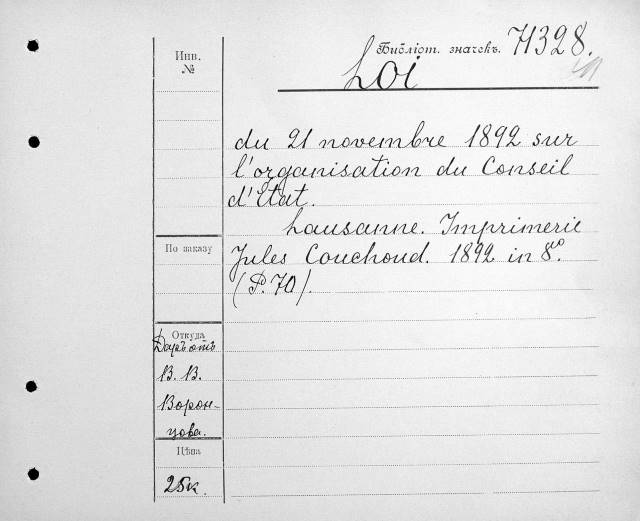 Библіот. значекъ. 71328.
Инв.
№
Loi
du 21 novembre 1892 sur
l'organisation du Conseil
d'État.
Lausanne. Imprimerie
По заказу
Jules Couchoud. 1892 in 8°.
(P. 70).
Откуда
Даръ отъ
В. В.
Ворон-
цова.
Цѣна
25к.